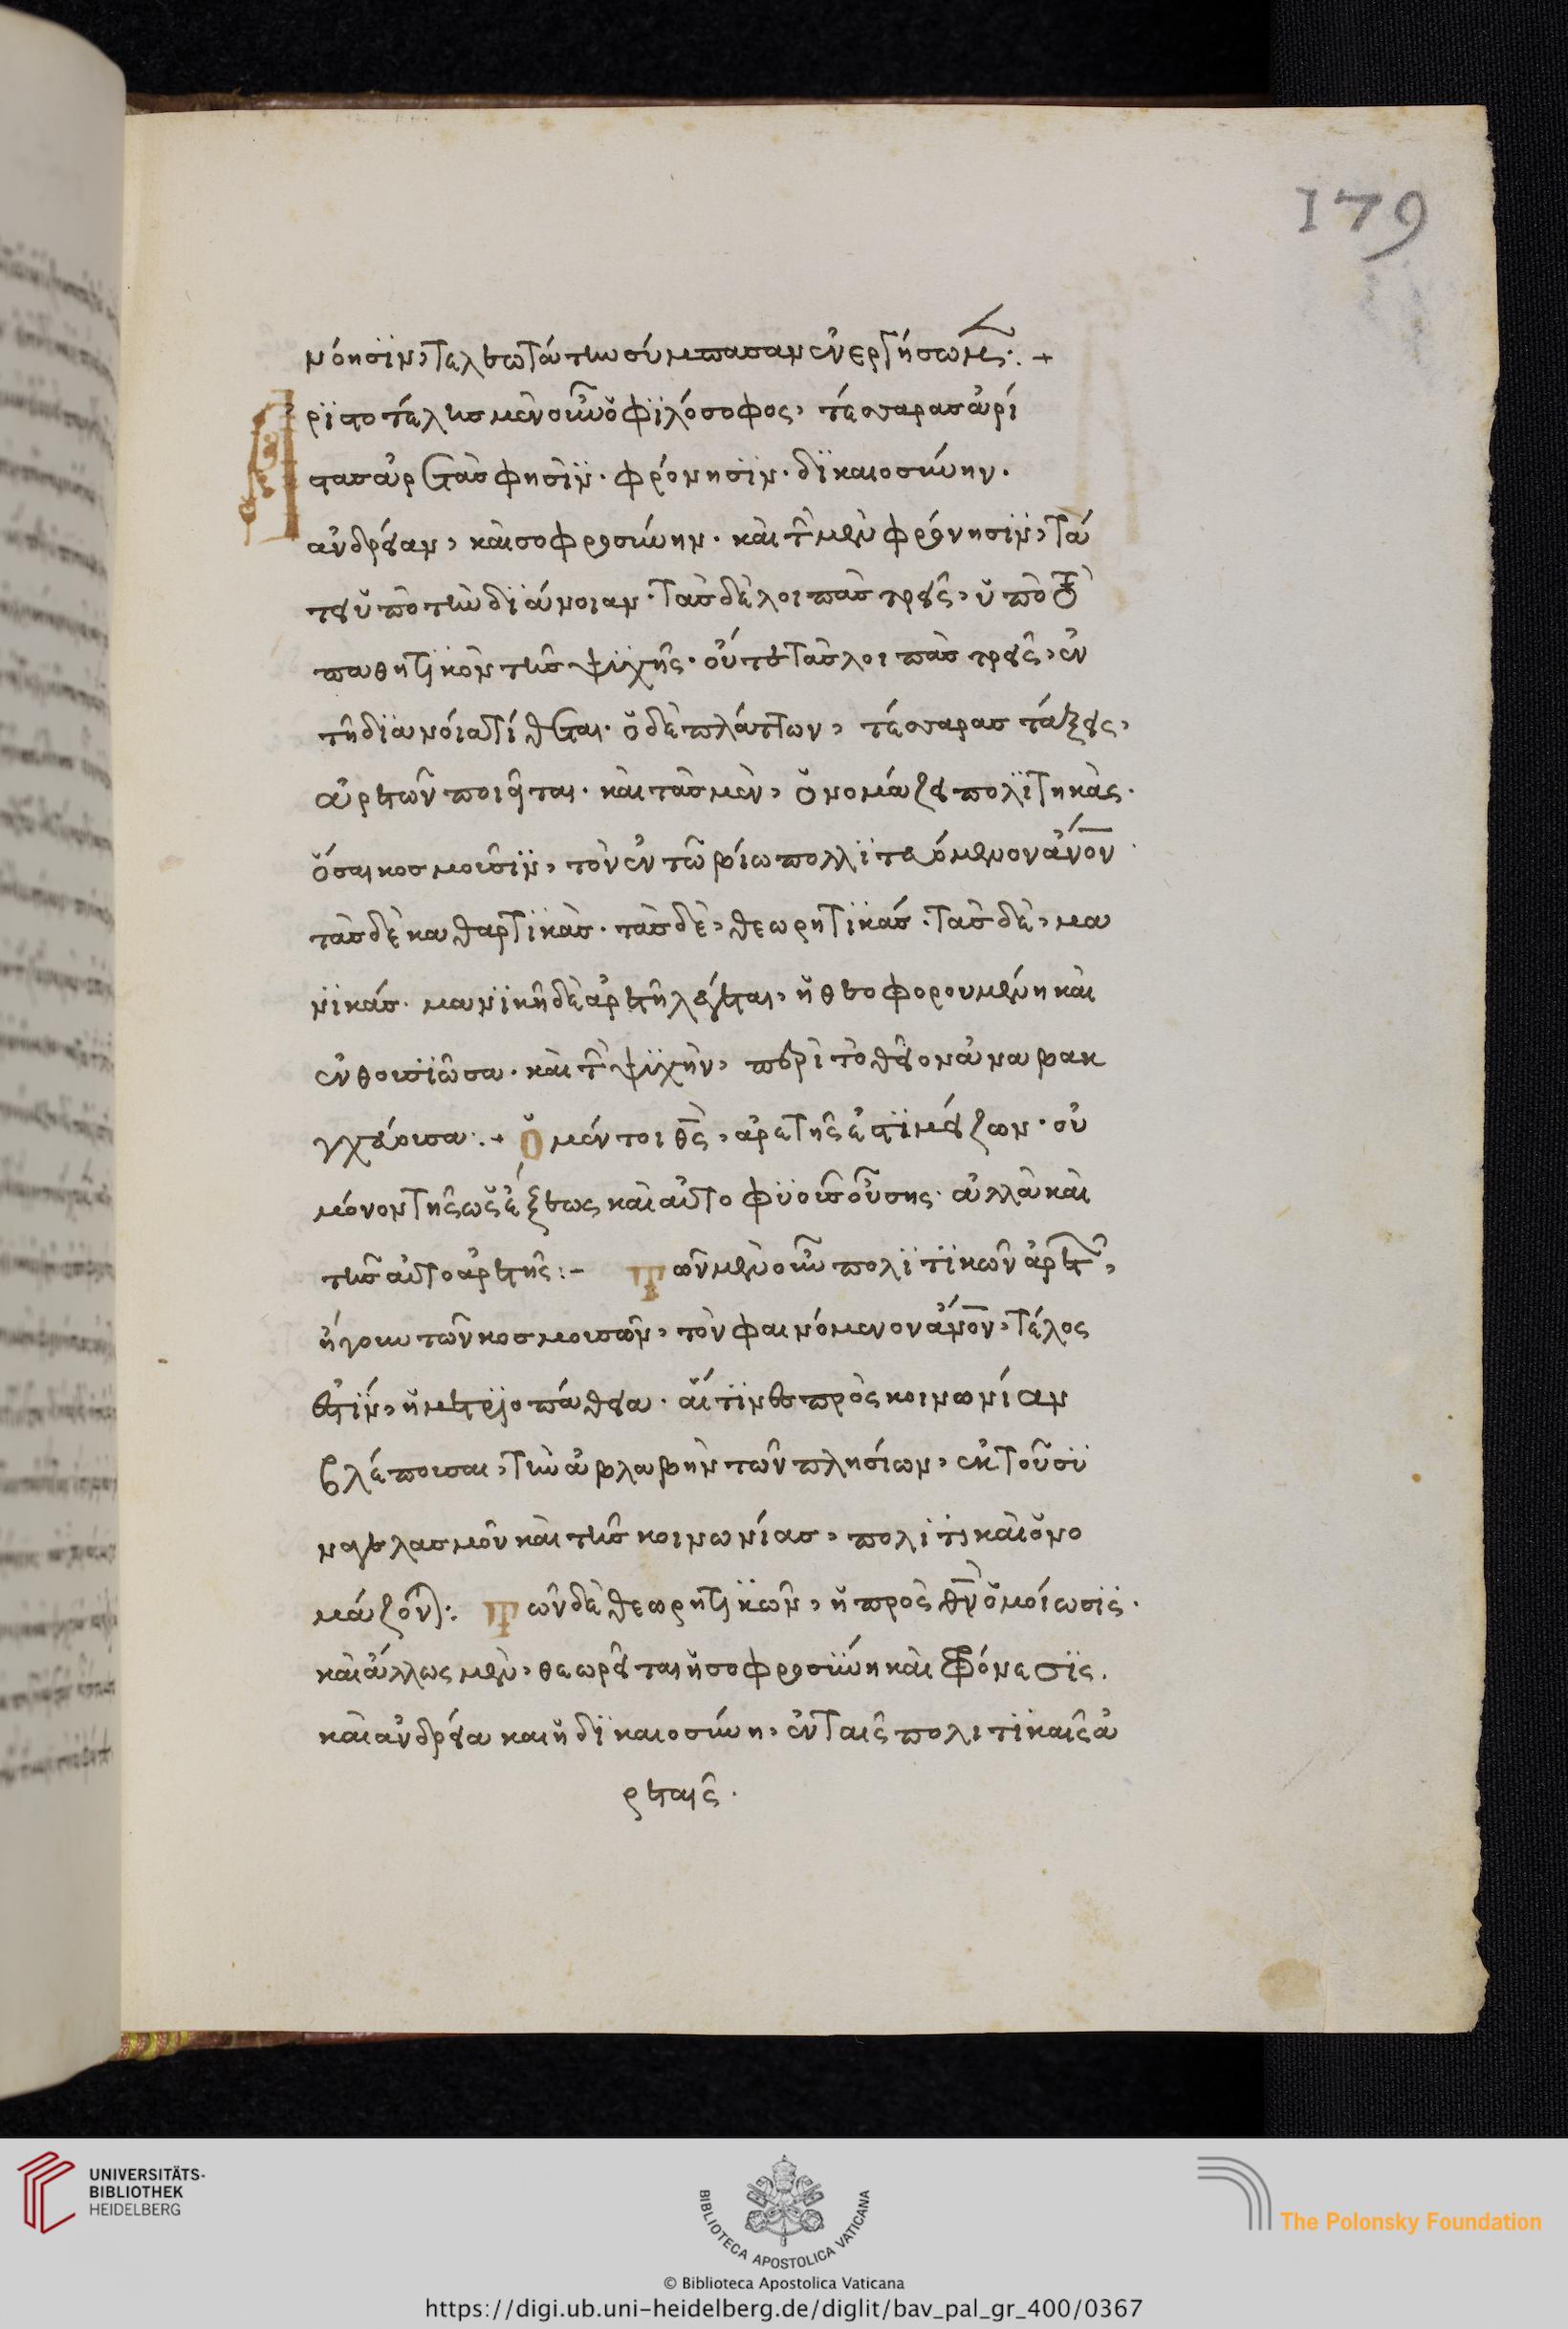 179
νόησϊν, τελεωτάτην σύμπασαν ἐνεργήσωμεν:. +
Ἀρϊστοτέλης μὲν οὖν ὁ φϊλόσοφος, τέσσαρας ἀρί
στας ἀρετάς φησϊν. φρόνησϊν. δϊκαιοσύνην.
ἀνδρείαν, καὶ σοφροσύνην. καὶ τὴν μὲν φρόνησϊν, τάτ
τει ὑπὸ τὴν δϊάνοιαν. τὰς δὲ λοιπὰς τρεῖς, ὑπὸ τὸ
παθητϊκὸν τῆς ψϋχῆς. οὔτε τὰς λοιπὰς τρεῖς, ἐν
τῆ δϊανόια τίθεται. ὁ δὲ πλάττων, τέσσαρας τάξεις,
ἀρετῶν ποιῆται. καὶ τὰς μὲν, ὀνομάζει πολϊτηκὰς.
ὅσαι κοσμοῦσϊν, τὸν ἐν τῶ βίω πολλϊτεόμενον ἄνον.
τὰς δὲ καθαρτϊκὰς. τὰς δὲ, θεωρητϊκάς. τὰς δὲ, μα
νϊκάς. μανϊκὴ δὲ ἀρετὴ λέγεται, ἡ θεοφορουμένη καὶ
ἐνθουσϊῶσα. καὶ τὴν ψϋχὴν, περὶ τὸ θεῖον ἀναβακ
γχεύουσα:. + Ὁ μέντοι θς, ἀρετῆς ἐστϊ μείζων. οὐ
μόνον τῆς ὡς ἕξεως καὶ αὐτοφϋοῦς οὔσης. ἀλλὰ καὶ
τῆς αὐτοαρετῆς:- Τῶν μὲν οὖν πολϊτϊκῶν ἀρετῶν,
ἤγουν τῶν κοσμουσῶν, τὸν φαινόμενον ἄνον, τέλος
ἐστϊν, ἡ μετρϊοπάθεια. αἵτϊνες πρὸς κοινωνίαν
βλέπουσαι, τὴν ἀβλαβὴν τῶν πλησίων, ἐκ τοῦ σϋ
ναγελασμοῦ καὶ τῆς κοινωνίας, πολιτϊκαὶ ὀνο
μάζονται:. Τῶν δὲ θεορητϊκῶν, ἡ πρὸς θν ὁμοίωσϊς.
καὶ ἄλλως μὲν, θεωρεῖται ἡ σοφροσϋνη καὶ φρόνεσϊς.
καὶ ἀνδρεία καὶ ἡ δϊκαιοσύνη, ἐν ταῖς πολιτϊκαῖς ἀ
ρεταῖς.
UNIVERSITÄTS-
BIBLIOTHEK
HEIDELBERG
BIBLIOTECA APOSTOLICA VATICANA
© Biblioteca Apostolica Vaticana
The Polonsky Foundation
https://digi.ub.uni-heidelberg.de/diglit/bav_pal_gr_400/0367